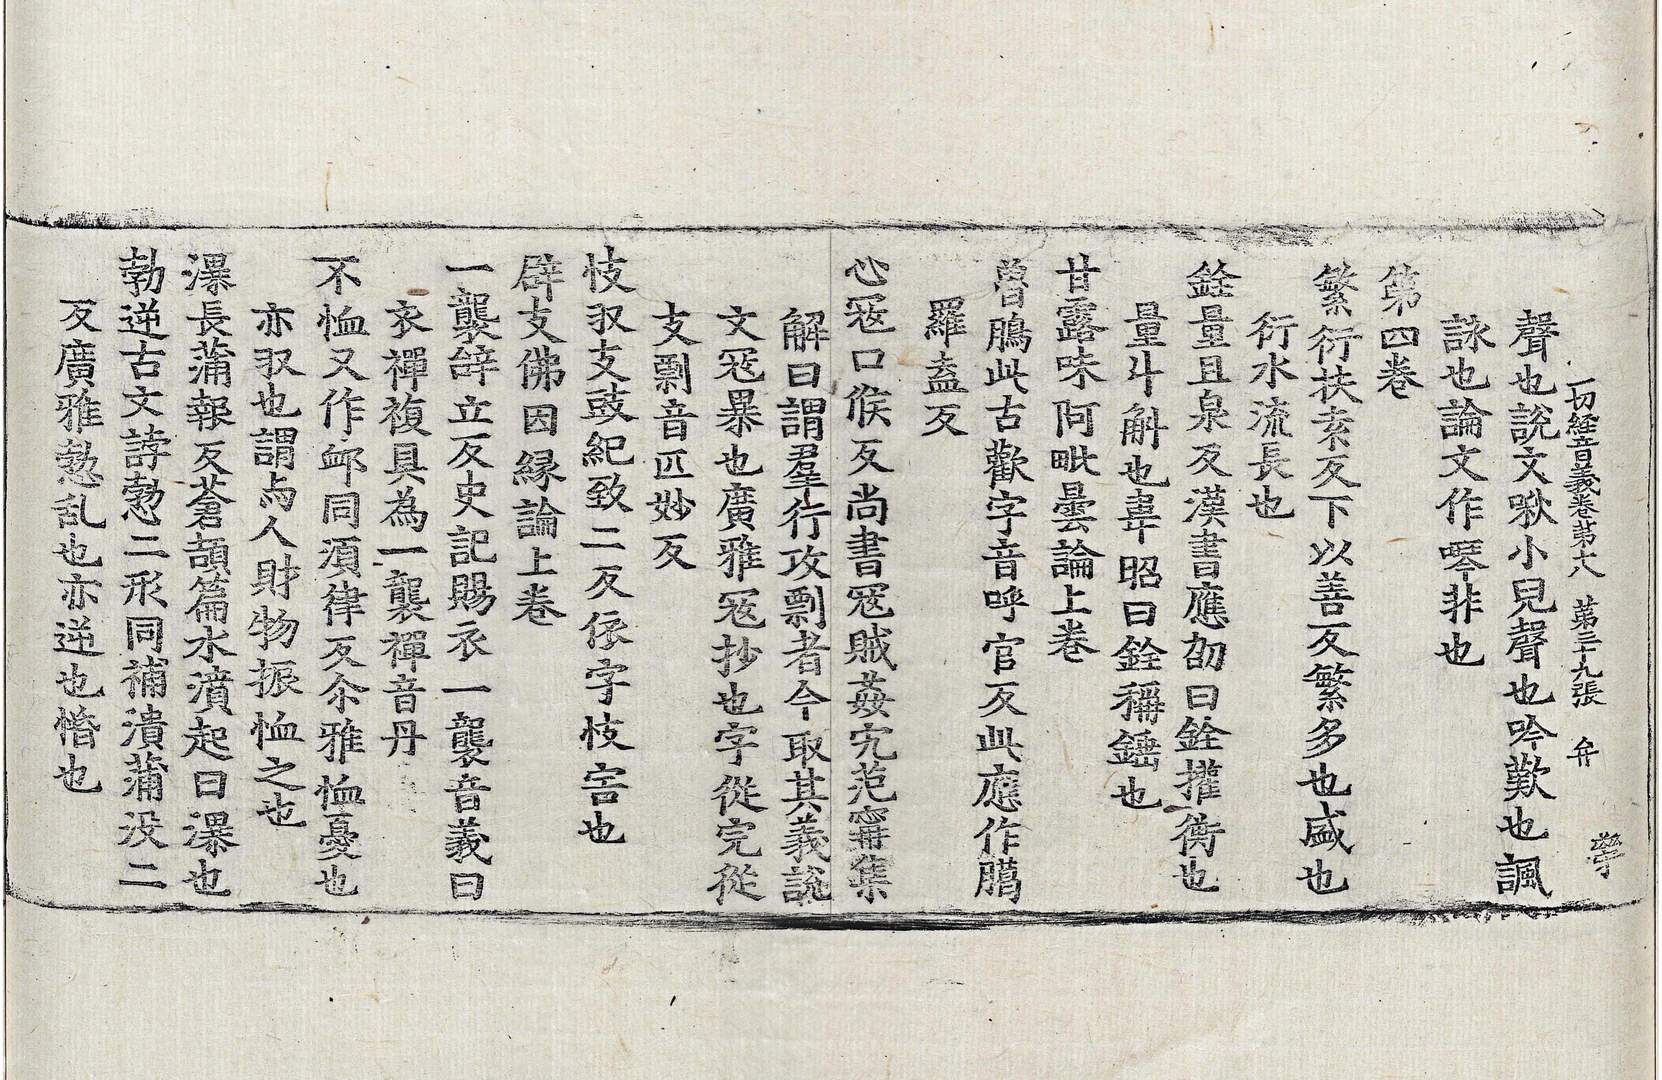 一切経音義卷第十八 第三十九張 弁
聲也說文啾小兒聲也吟歎也諷
詠也論文作噿非也
第四卷
繁衍扶素反下以善反繁多也盛也
衍水流長也
銓量且泉反漢書應劭曰銓攉衡也
量斗斛也韋昭曰銓稱錘也
甘露味阿毗曇論上卷
曾鵰此古歡字音呼官反此應作鵰
羅盍反
心寇口候反尚書寇賊姦宄范甯集
解曰謂羣行攻剽者今取其義說
文寇暴也廣雅寇抄也字從完從
支剽音匹妙反
忮㕛支豉紀致二反㑽字忮害也
辟支佛因縁論上卷
一襲辝立反史記賜衣一襲音義曰
衣襌複具為一襲襌音丹
不恤又作卹同湏律反尒雅恤憂也
亦收也謂与人財物振恤之也
瀑長蒲報反蒼頡篇水濆起曰瀑也
勃逆古文誖愂二形同補潰蒲没二
反廣雅愂乱也亦逆也惛也